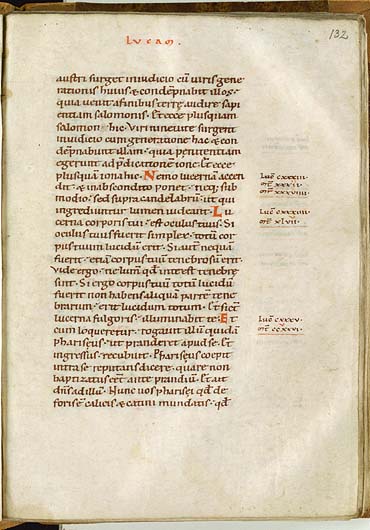 LUCAM.
132
austri surget inuudicio cū uiris gene
rationis huius & condēpnabit illos.
quia uenit afinibus terrę audire sapi
entiam salomonis. Et ecce plusquam
salomon hic. Viri nineuitę surgent
inuudicio cum generatione hac & con
dempnabunt illam. quia penitentiam
egerunt ad p̄dicationem ionę. Et ecce
plusquā iona hic. Nemo lucernā accen
dit. & inabscondito ponet. neq; sub
modio. sed supra candelabrū. ut qui
ingrediuntur lumen uideant. Lu
cerna corporis tui. est oculus tuus. Si
oculus tuus fuerit simplex. totū cor
pus tuum lucidū erit. Si autē nequā
fuerit. etiā corpus tuū tenebrosū erit.
Vide ergo. ne lum̄ qd̄ inte est tenebrę
sint. Si ergo corpus tuū totū lucidū
fuerit non habens aliquā partē tene
brarum. erit lucidum totum. Et sicut
lucerna fulgoris. illuminabit te. Et
cum loqueretur. rogauit illū quidā
pharisęus. ut pranderet apud se. Et
ingressus. recubuit. Pharisęus coepit
intra se reputans dicere. quare non
baptizatus eēt ante prandiū. Et ait
dn̄s ad illū. Nunc uos pharisęi qd̄ de
foris ē calicis & catini mundatis. qd̄
Luc̄ cxxxiii
Mt̄ xxxii
Mr̄ xxxviiii
Luc̄ cxxxiiii
Mt̄ xlvii
Luc̄ cxxxv
Mt̄ ccxxxvi